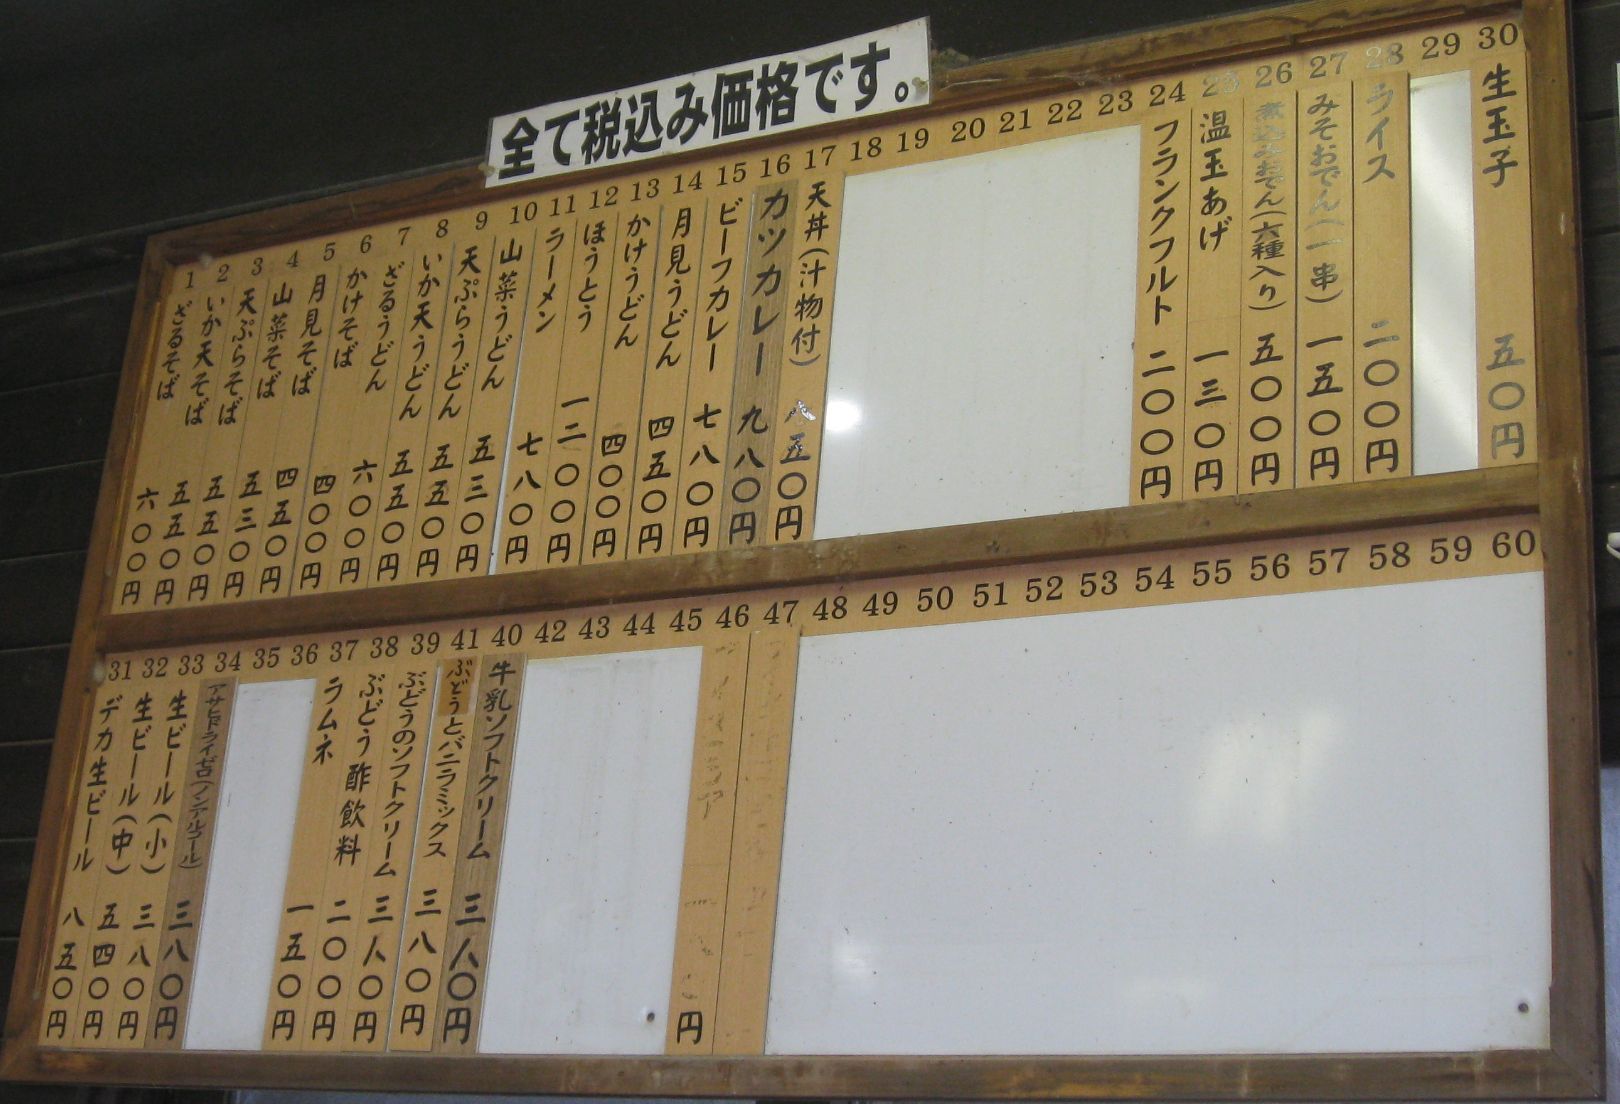 全て税込み価格です。
1 ざるそば 六〇〇円
2 いか天そば 五五〇円
3 天ぷらそば 五五〇円
4 山菜そば 五三〇円
5 月見そば 四五〇円
6 かけそば 四〇〇円
7 ざるうどん 六〇〇円
8 いか天うどん 五五〇円
9 天ぷらうどん 五五〇円
10 山菜うどん 五三〇円
11 ラーメン 七八〇円
12 ほうとう 一二〇〇円
13 かけうどん 四〇〇円
14 月見うどん 四五〇円
15 ビーフカレー 七八〇円
16 カツカレー 九八〇円
17 天丼(汁物付) 八五〇円
18
19
20
21
22
23
24 フランクフルト 二〇〇円
25 温玉あげ 一三〇円
26 煮込みおでん(六種入り) 五〇〇円
27 みそおでん(一串) 一五〇円
28 ライス 二〇〇円
29
30 生玉子 五〇円
31 デカ生ビール 八五〇円
32 生ビール(中) 五四〇円
33 生ビール(小) 三八〇円
34 アサヒドライゼロ(ノンアルコール) 三八〇円
35
36
37 ラムネ 一五〇円
38 ぶどう酢飲料 二〇〇円
39 ぶどうのソフトクリーム 三八〇円
41 ぶどうとバニラミックス 三八〇円
40 牛乳ソフトクリーム 三八〇円
42
43
44
45
46 円
47
48
49
50
51
52
53
54
55
56
57
58
59
60